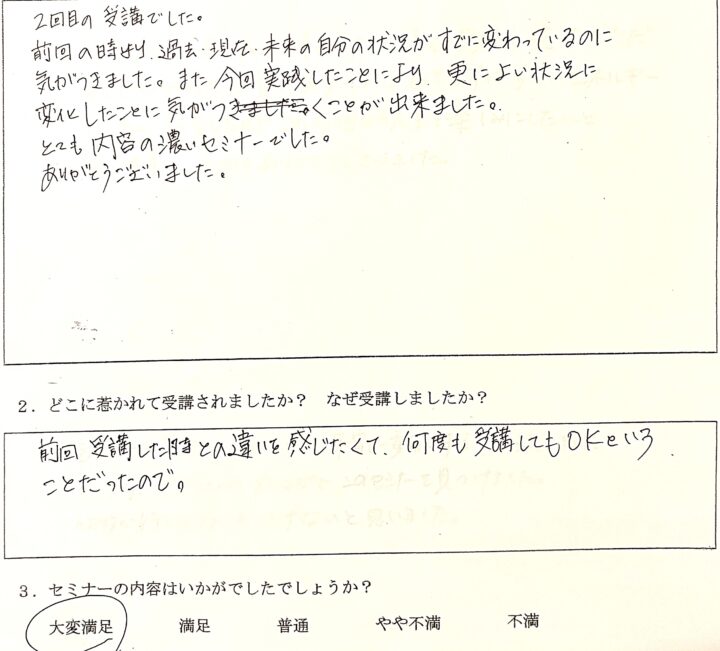 2回目の受講でした。
前回の時より、過去・現在・未来の自分の状況がすでに変わっているのに
気がつきました。また今回実践したことにより、更によい状況に
変化したことに気がつきました。くことが出来ました。
とても内容の濃いセミナーでした。
ありがとうございました。
2．どこに惹かれて受講されましたか？　なぜ受講しましたか？
前回受講した時との違いを感じたくて、何度も受講してもOKという
ことだったので。
3．セミナーの内容はいかがでしたでしょうか？
大変満足　満足　普通　やや不満　不満